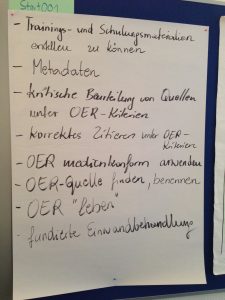 Start001
- Trainings- und Schulungsmaterialien
erstellen zu können
- Metadaten
- kritische Beurteilung von Quellen
unter OER-Kriterien
- korrektes Zitieren unter OER-
Kriterien
- OER medienkonform anwenden
- OER-Quelle finden, benennen
- OER "leben"
- fundierte Einwandbehandlung